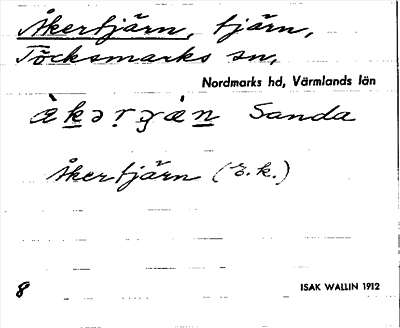 Åkertjärn, tjärn,
Töcksmarks sn,
Nordmarks hd, Värmlands län
Sanda
Åkertjärn (E.k.)
8
ISAK WALLIN 1912